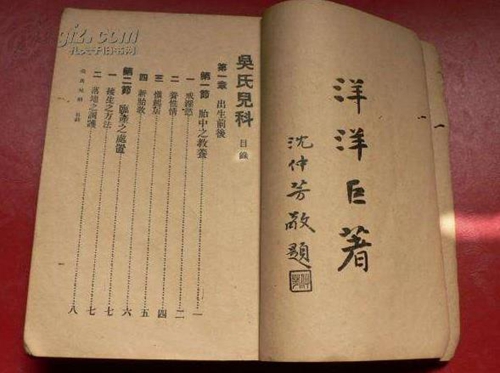 洋洋巨著
沈仲芳敬題
吳氏兒科 目錄
第一章 出生前後
第一節 胎中之教養 一
一 戒 二
二 養性情 四
三 慎起居 五
四 新胎教 六
第二節 臨產之處置 七
一 接生之方法 七
二 落地之調護 八
吳氏兒科 目錄
孔夫子旧书网